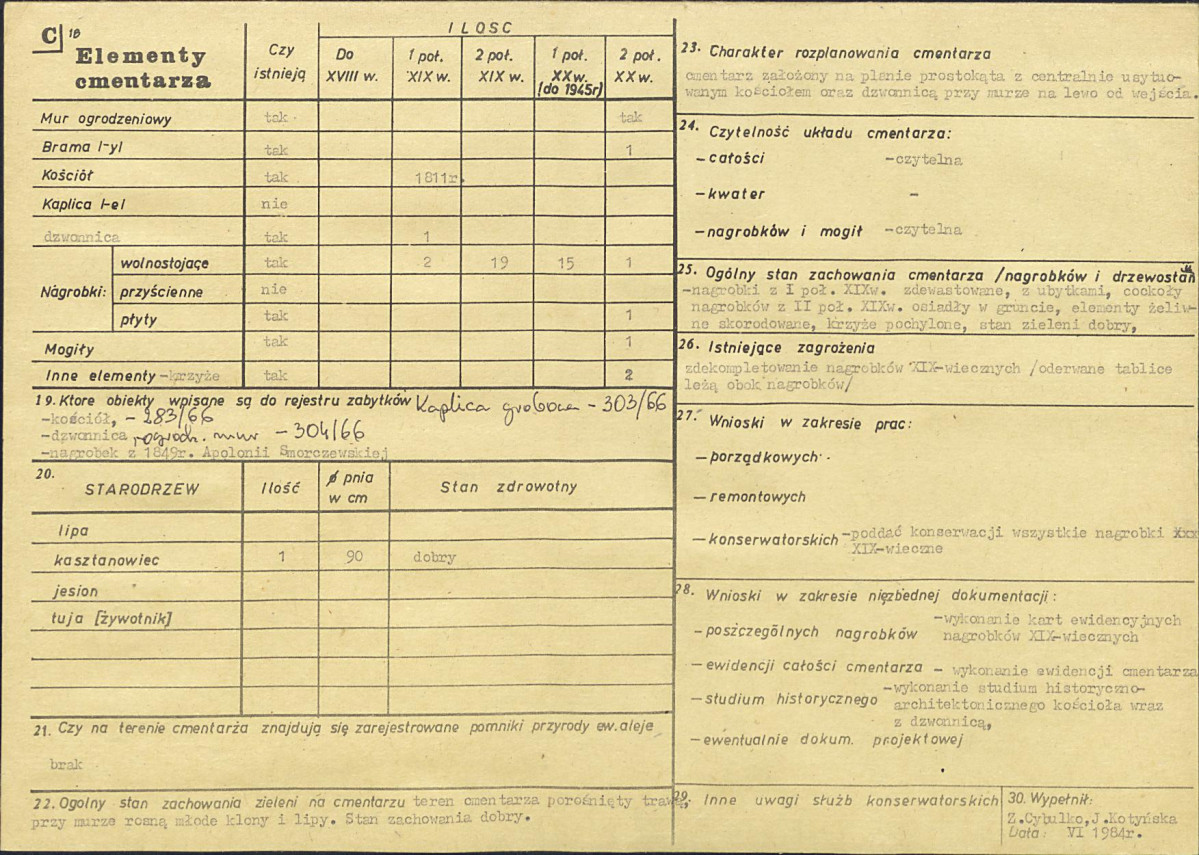 C 18
Elementy cmentarza
Czy istnieją
ILOSC
Do XVIII w.
1 poł. XIX w.
2 poł. XIX w.
1 poł. XX w. (do 1945r)
2 poł. XX w.
Mur ogrodzeniowy tak tak
Brama l-yl tak 1
Kościół tak 1811r.
Kaplica l-el nie
dzwonnica tak 1
Nagrobki:
wolnostojące tak 2 19 15 1
przyścienne nie
płyty tak 1
Mogiły tak 1
Inne elementy -krzyże tak 2
19. Ktore obiekty wpisane są do rejestru zabytków Kaplica grobowa - 303/66
-kościół, - 283/66
-dzwonnica, ogrodz. mur - 304/66
-nagrobek z 1849r. Apolonii Smorczewskiej
20.
STARODRZEW Ilość ø pnia w cm Stan zdrowotny
lipa
kasztanowiec 1 90 dobry
jesion
tuja [żywotnik]
21. Czy na terenie cmentarża znajdują się zarejestrowane pomniki przyrody ew. aleje
brak
22. Ogolny stan zachowania zieleni na cmentarzu teren cmentarza porośnięty trawą,
przy murze rosną młode klony i lipy. Stan zachowania dobry.
23. Charakter rozplanowania cmentarza
cmentarz założony na planie prostokąta z centralnie usytuo-
wanym kościołem oraz dzwonnicą przy murze na lewo od wejścia.
24. Czytelność układu cmentarza:
-całości -czytelna
-kwater -
-nagrobków i mogił -czytelna
25. Ogólny stan zachowania cmentarza /nagrobków i drzewostan
-nagrobki z I poł. XIXw. zdewastowane, z ubytkami, cockoły
nagrobków z II poł. XIXw. osiadły w gruncie, elementy żeliw-
ne skorodowane, krzyże pochylone, stan zieleni dobry,
26. Istniejące zagrożenia
zdekompletowanie nagrobków XIX-wiecznych /oderwane tablice
leżą obok nagrobków/
27. Wnioski w zakresie prac:
-porządkowych
-remontowych
-konserwatorskich -poddać konserwacji wszystkie nagrobki xxx
XIX-wieczne
28. Wnioski w zakresie niezbednej dokumentacji:
-poszczególnych nagrobków -wykonanie kart ewidencyjnych
nagrobków XIX-wiecznych
-ewidencji całości cmentarza - wykonanie ewidencji cmentarza
-studium historycznego -wykonanie studium historyczno-
architektonicznego kościoła wraz
z dzwonnicą,
-ewentualnie dokum. projektowej
29. Inne uwagi służb konserwatorskich
30. Wypełnił:
Z.Cybulko, J.Kotyńska
Data: VI 1984r.